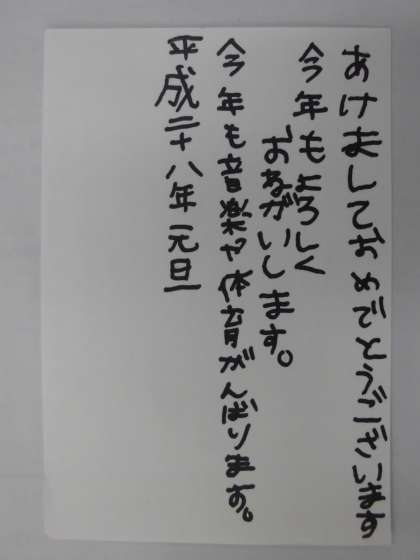 あけましておめでとうございます
今年もよろしく
おねがいします。
今年も音楽や体育がんばります。
平成二十八年元旦